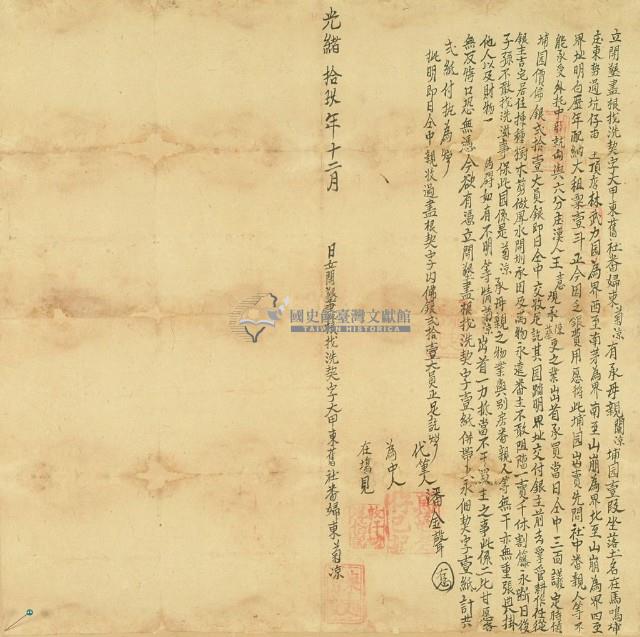 立開墾盡根找洗契字大甲東舊社番婦東菊凉有承母親蘭凉埔園壹段坐落土名在馬鳴埔
庄東勢過坑仔面土項東林武力園為界西至南芳為界南至山崩為界北至山崩為界四至
界址明白歷年配納大租粟壹斗正今因乏銀費用愿將此埔園出賣先問社中番親人等不
能承受外托中引就向與六分庄漢人王
更之業出首承買當日仝中三面議定時值
埔園價佛銀貳拾壹大員銀即日仝中交收足訖其園踏明界址交付銀主前去掌管耕作任從
銀主吉宅居住揷種樹木剪做風水開圳水田及萬物永遠番主不敢阻擋一賣千休割籐永斷日後
子孫不敢找洗滋事保此園係是菊凉承母親之物業與別房番親人等無干亦無重張典掛
他人以及財物一為碍如有不明等情菊凉出首一力抵當不干買主之事此係二比甘愿各
無反悔口恐無憑今欲有憑立開墾盡根找洗契字壹紙併帶上永佃契字壹紙計共
貳紙付執為炤
批明即日仝中親收過盡根契字內佛銀貳拾壹大員正足訖炤
代筆人潘金聲
為中人
在塲見
光緒拾玖年十二月
日立開墾盡根找洗契字大甲東舊社番婦東菊凉
國史館臺灣文獻館
TAIWAN HISTORICA